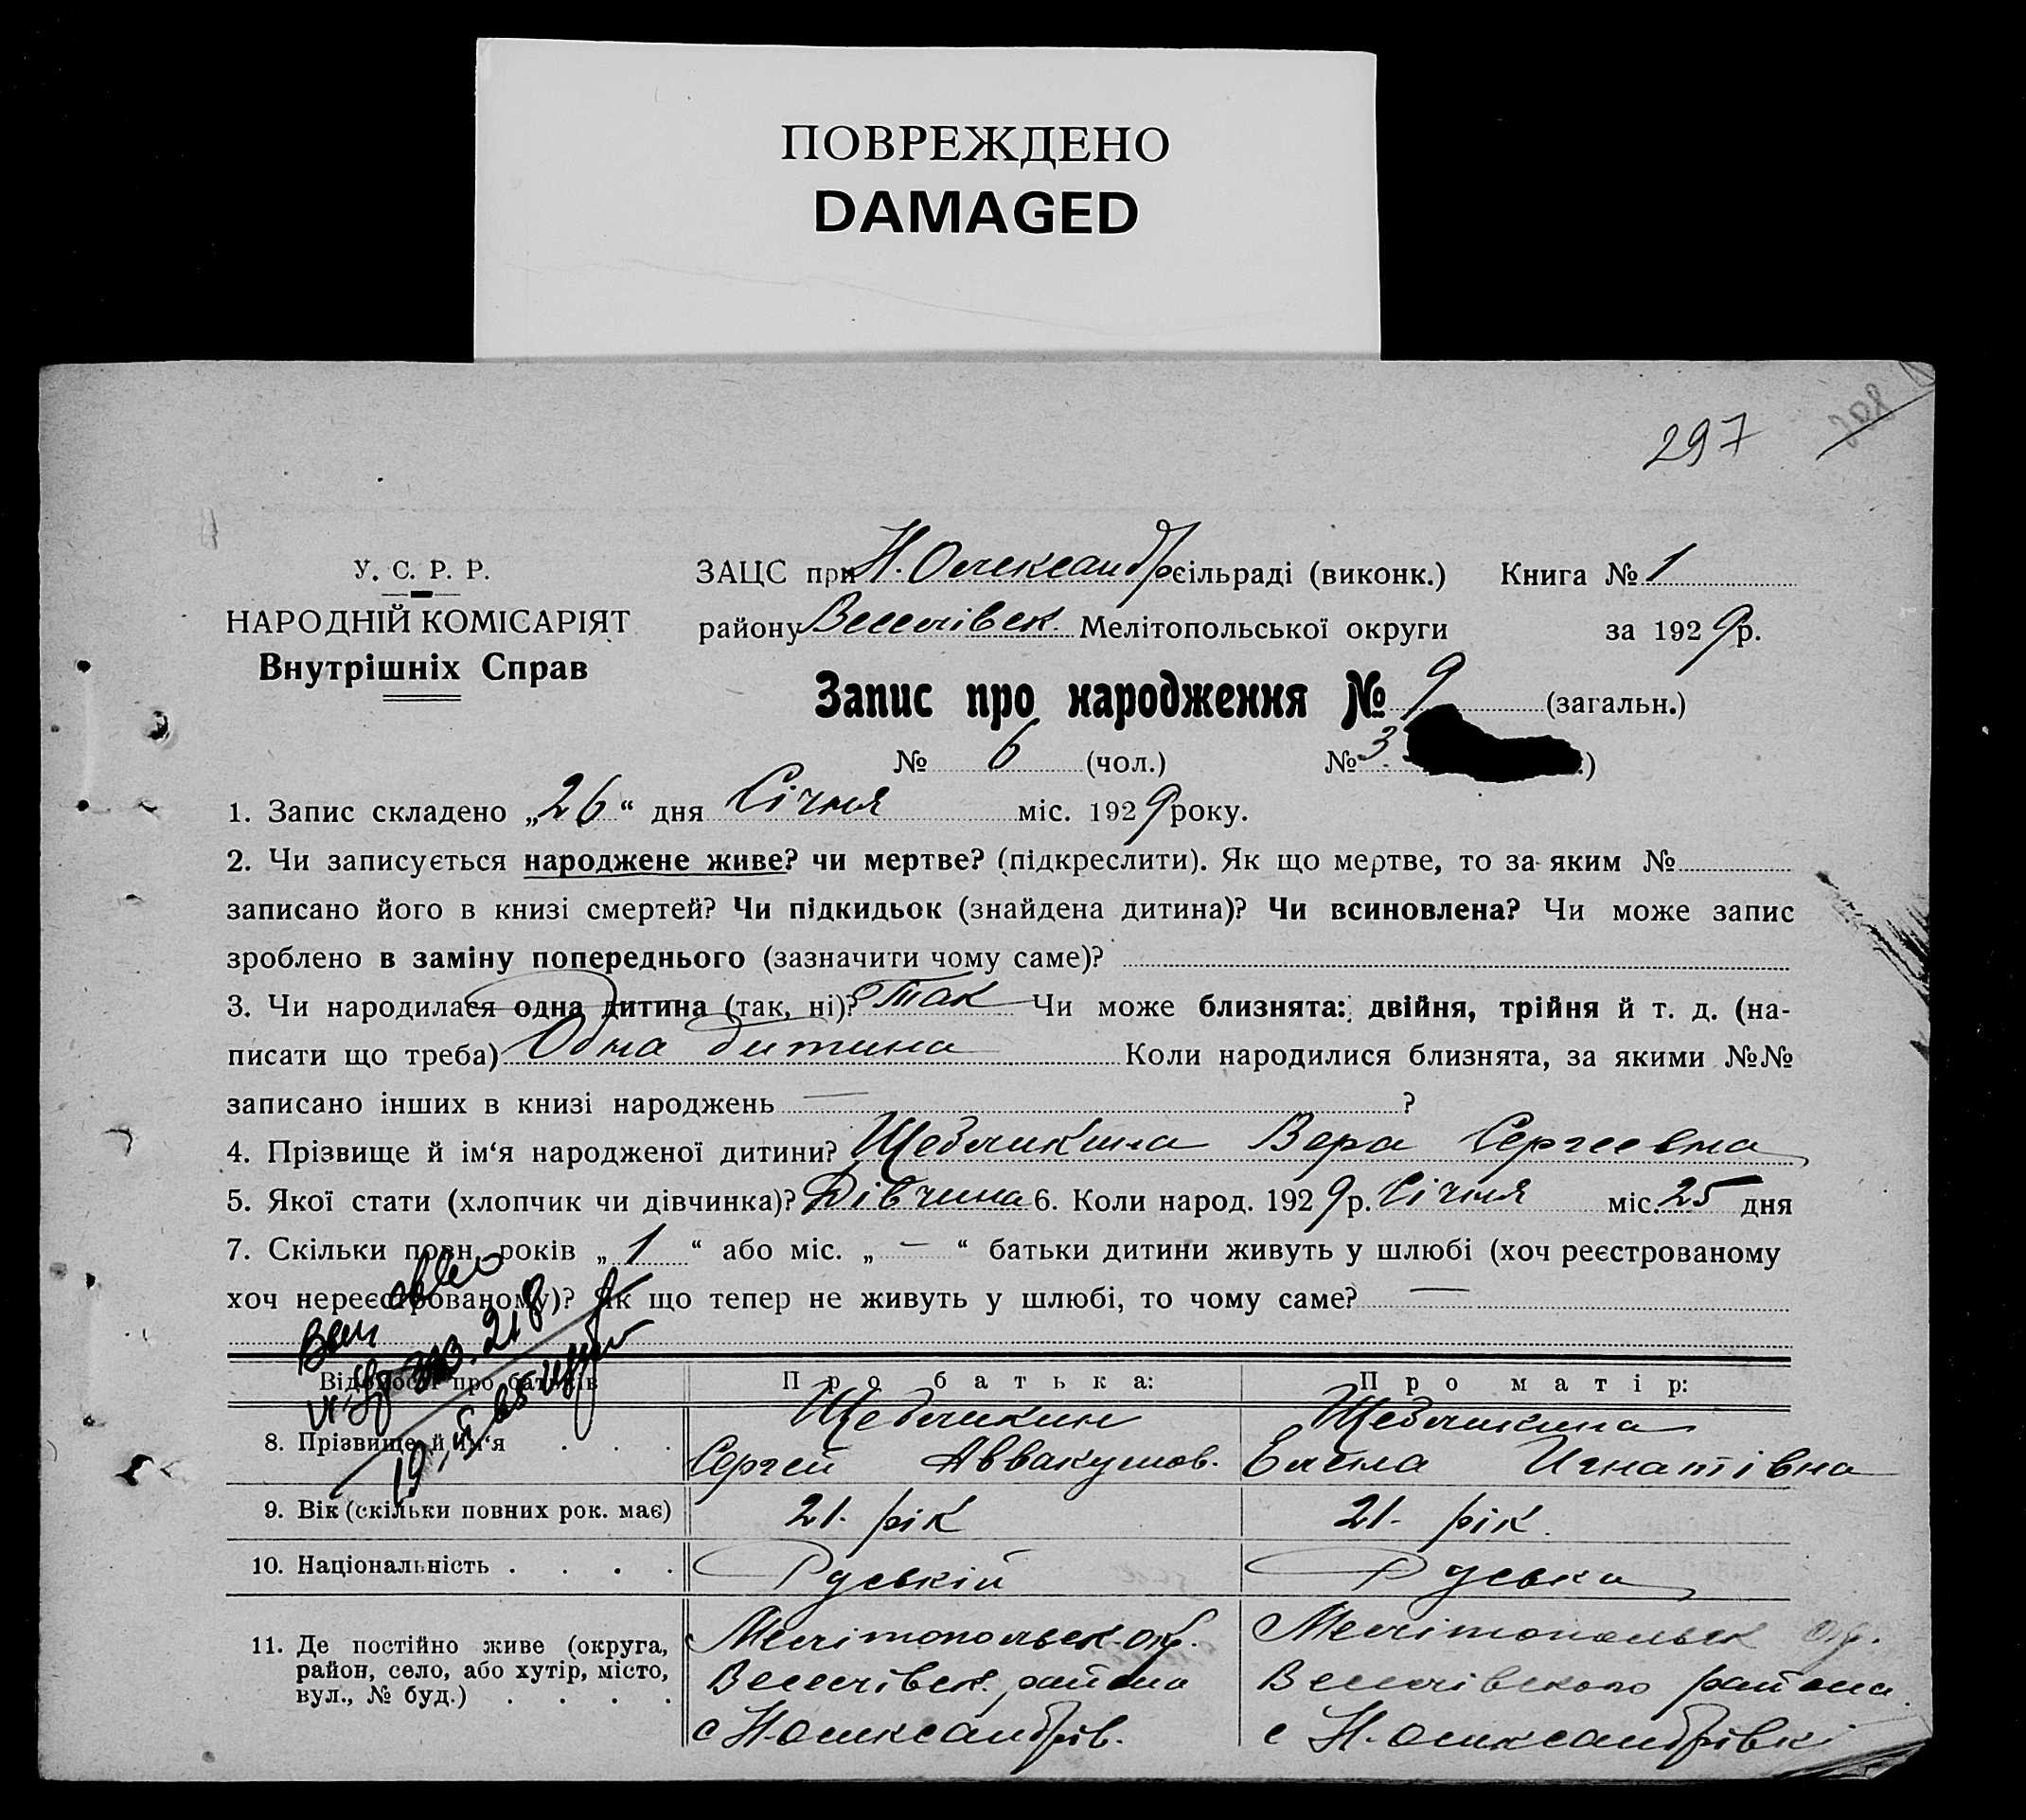 ПОВРЕЖДЕНО
DAMAGED
297
У. С. Р. Р.
НАРОДНІЙ КОМІСАРІЯТ
Внутрішніх Справ
ЗАЦС при Н. Олександр сільраді (виконк.) Книга № 1
району Веселівск. Мелітопольської округи за 1929 р.
Запис про народження № 9 (загальн.)
№ 6 (чол.) № 3 )
1. Запис складено „26“ дня Січня міс. 1929 року.
2. Чи записується народжене живе? чи мертве? (підкреслити). Як що мертве, то за яким №
записано його в книзі смертей? Чи підкидьок (знайдена дитина)? Чи всиновлена? Чи може запис
зроблено в заміну попереднього (зазначити чому саме)?
3. Чи народилася одна дитина (так, ні)? Так Чи може близнята: двійня, трійня й т. д. (на-
писати що треба) Одна дитина Коли народилися близнята, за якими №№
записано інших в книзі народжень — ?
4. Прізвище й ім‘я народженої дитини? Щебликина Вера Сергеевна
5. Якої стати (хлопчик чи дівчинка)? Дівчина 6. Коли народ. 1929 р. Січня міс. 25 дня
7. Скільки повн. років „1“ або міс. „—“ батьки дитини живуть у шлюбі (хоч реєстрованому
хоч нереєстрованому)? Як що тепер не живуть у шлюбі, то чому саме? —
Відомості про батьків Про батька: Про матір:
8. Прізвище й им‘я . . . Щебликин Щебликина
Сергей Аввакумов. Елена Игнатівна
9. Вік (скільки повних рок. має) 21. рік 21. рік.
10. Національність . . . . Руський Руська
11. Де постійно живе (округа, Мелітопольск. окр. Мелітопольск окр.
район, село, або хутір, місто, Веселівск. района Веселівского района.
вул., № буд.) . . . . с Н-олександрів. с Н. олександрівкі